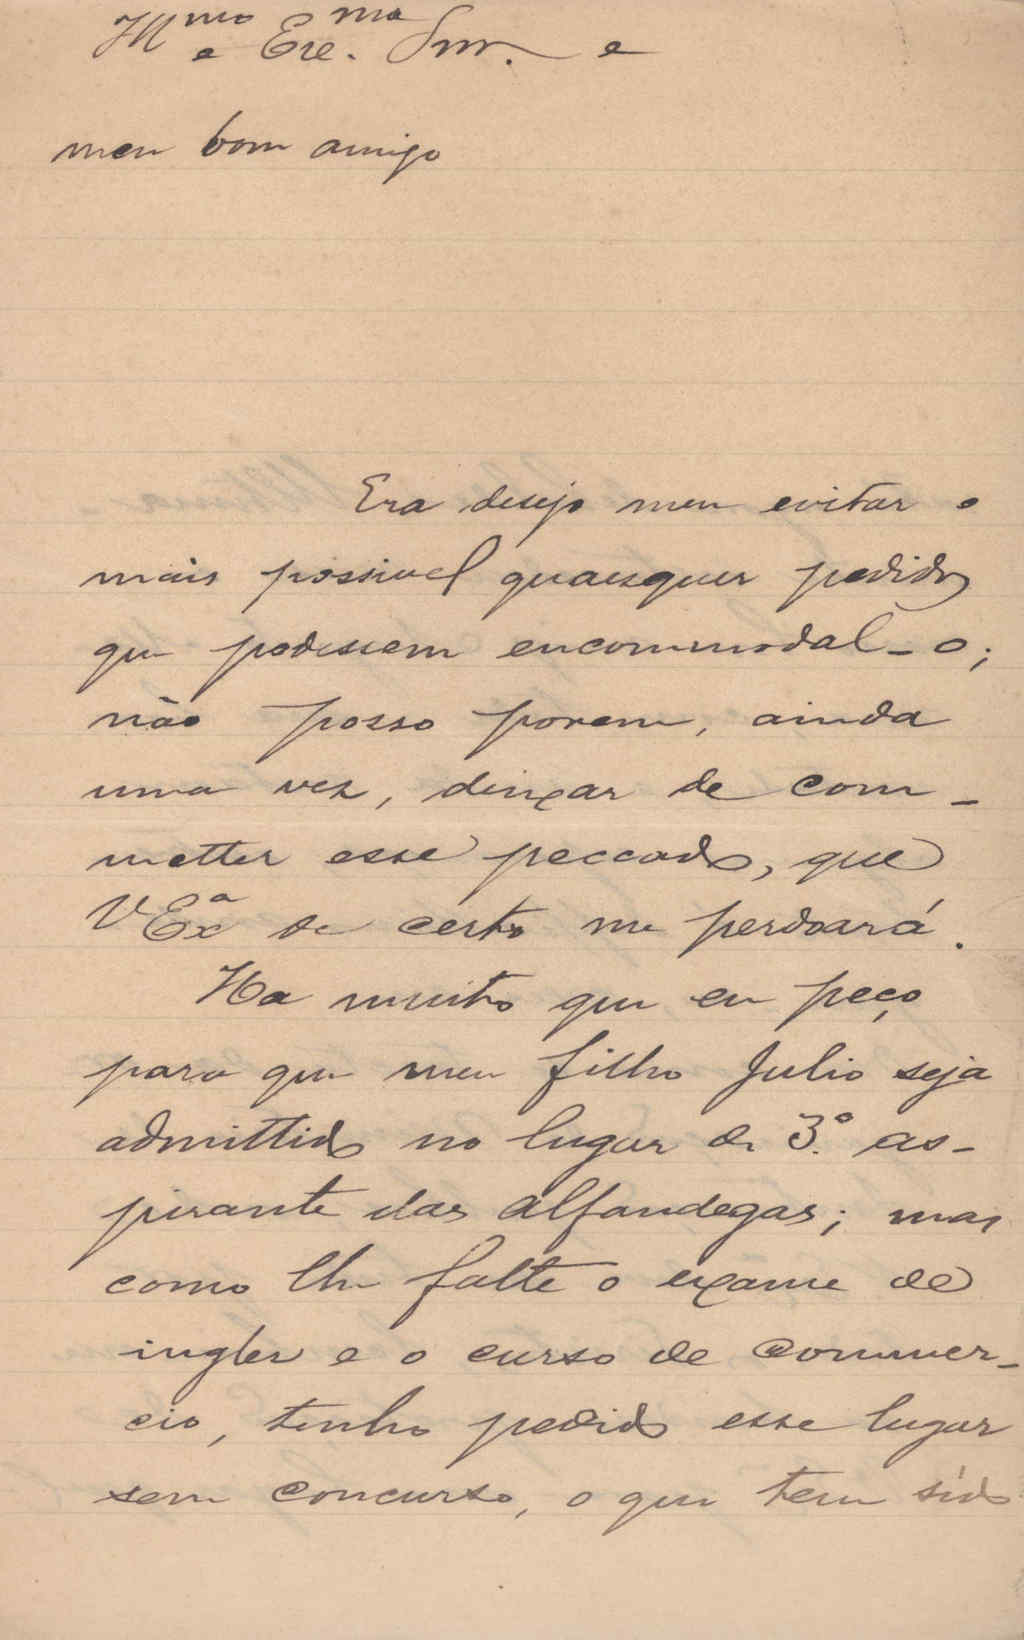 Illmo e Exe.ma Snr. e
meu bom amigo
Era desejo meu evitar o
mais possivel quaesquer pedidos
que podessem encommodal-o;
não posso porem, ainda
uma vez, deixar de com-
metter esse peccado, que
VExª de certo me perdoará.
Ha muito que eu peço
para que meu filho Julio seja
admittido no lugar de 3.º as-
pirante das alfandegas; mas
como lhe falte o exame de
inglez e o curso de commer-
cio, tenho pedido esse lugar
sem concurso, o que tem sido